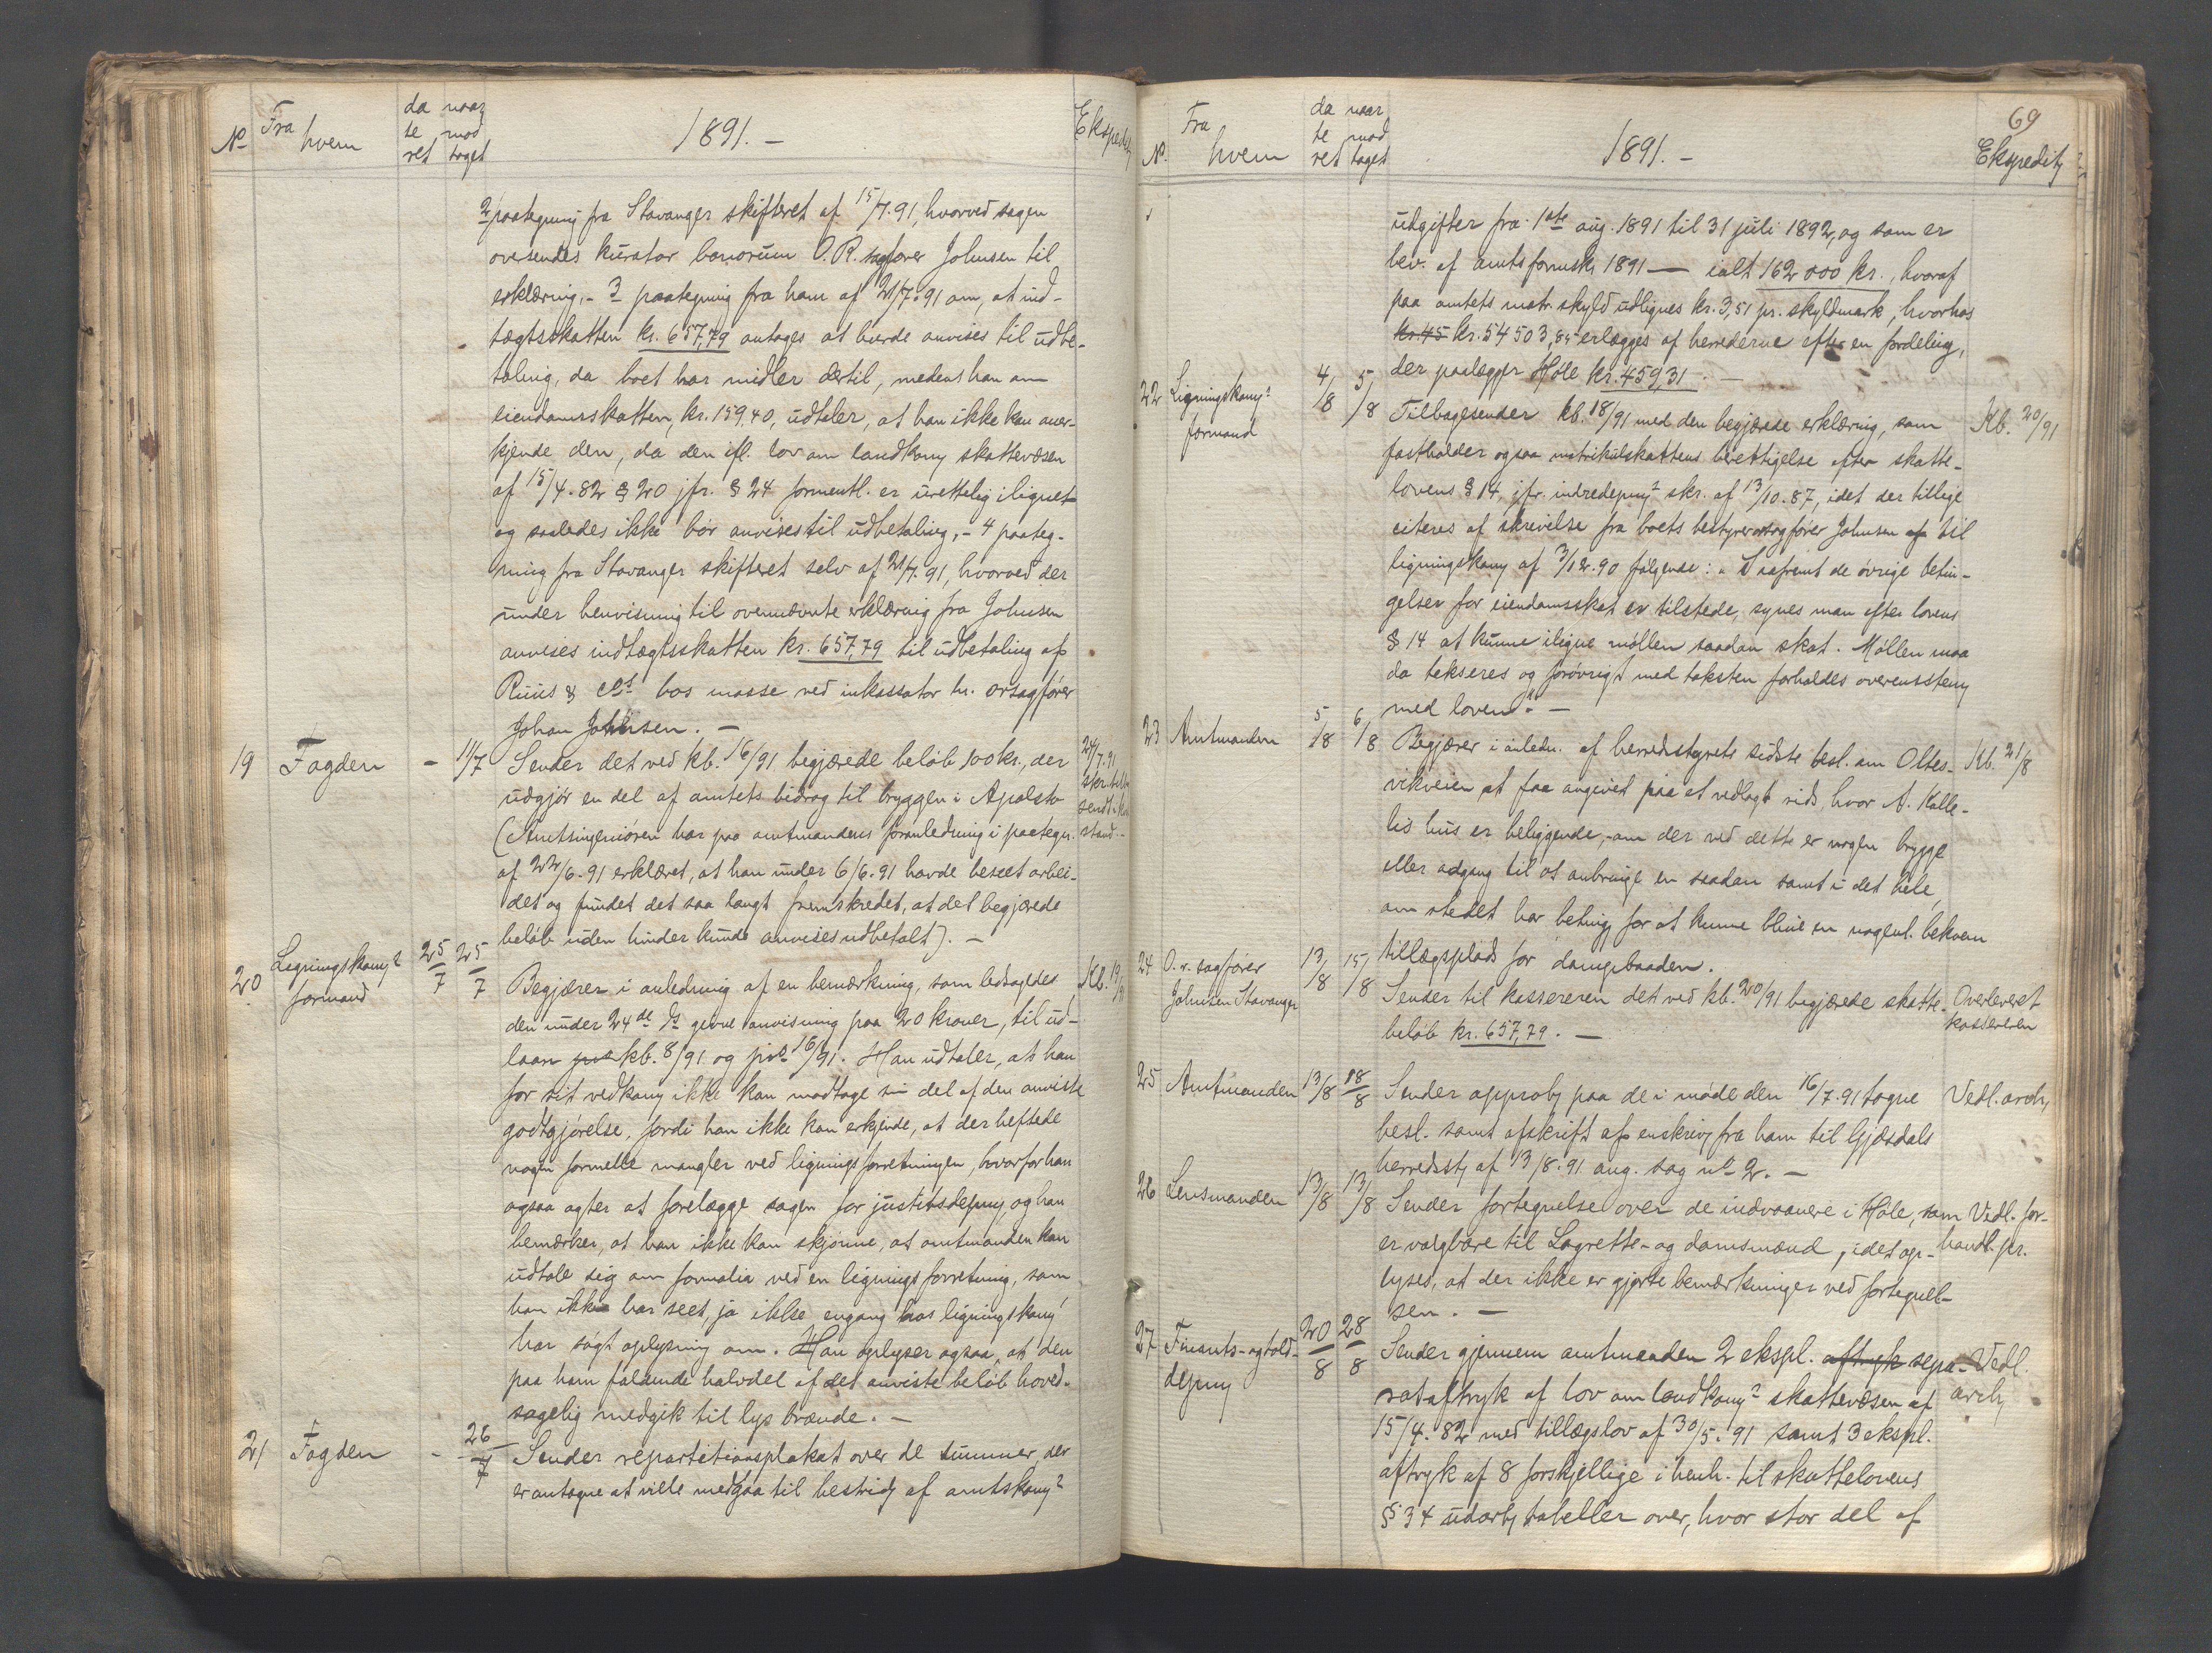 No Fra hvem da te ret naar mod taget 1891. – Ekspedit
2 paategning fra Stavanger skifteret af 15/7.91, hvorved sagen
oversendes kurator bonorum O.R. sagfører Johnsen til
erklæring, – 3 paategning fra ham af 21/7.91 om, at ind-
tægtsskatten kr. 657,79 antages at burde anvises til udbe-
taling, da boet har midler dertil, medens han om
eiendomsskatten, kr. 159,40, udtaler, at han ikke kan aner-
kjende den, da den ifl. lov om landkomm skattevæsen
af 15/4.82 § 20 jfr. § 24 formentl. er urettelig ilignet
og saaledes ikke bør anvises til udbetaling, – 4 paateg-
ning fra Stavanger skifteret selv af 21/7.91, hvorved der
under henvisning til ovennævnte erklæring fra Johnsen
anvises indtægtsskatten kr. 657,79 til udbetaling af
Riis & cos bos masse ved inkassator hr. orsagfører
Johan Johnsen. –
19 Fogden – 11/7 Sender det ved kb. 16/91 begjærede beløb 100 kr., der 24/7.91
udgjør en del af amtets bidrag til bryggen i Apalstø
(Amtsingeniøren har paa amtmandens foranledning i paategn.
af 22/6.91 erklæret, at han under 6/6.91 havde beseet arbei-
det og fundet det saa langt fremskredet, at det begjærede
beløb uden hinder kunde anvises udbetalt). –
20 Ligningskomm formand 25/7 25/7 Begjærer i anledning af en bemærkning, som ledsagede Kb. 19/91
den under 24de ds givne anvisning paa 20 kroner, til ud-
laan kb. 8/91 og 16/91. Han udtaler, at han
for sit vedkomm ikke kan modtage sin del af den anviste
godtgjørelse, fordi han ikke kan erkjende, at der heftede
nogen formelle mangler ved ligningsforretningen, hvorfor han
ogsaa agter at forelægge sagen for justitsdepmn, og han
bemærker, at han ikke kan skjønne, at amtmanden kan
udtale sig om formalia ved en ligningsforretning, som
han ikke har seet, ja ikke engang hos ligningskomm
har søgt oplysning om. Han oplyser ogsaa, at den
paa ham faldende halvdel af det anviste beløb hoved-
sagelig medgik til lys brænde. –
21 Fogden – 26/7 Sender repartitionsplakat over de summer, der
er antagne at ville medgaa til bestridj af amtskomm
69
No. Fra hvem da te ret naar mod taget 1891. – Ekspedit
udgifter fra 1ste aug. 1891 til 31 juli 1892, og som er
bev. af amtsformsk. 1891 — ialt 162 000 kr., hvoraf
paa amtets matr. skyld udlignes kr. 3,51 pr. skyldmark, hvorhos
kr. 45 kr. 54503,85 erlægges af herrederne efter en fordeling,
der paalægger Høle kr. 459,31. –
22 Ligningskomm formand 4/8 5/8 Tilbagesender kb. 18/91 med den begjærede erklæring, som Kb. 20/91
fastholder ogsaa matrikulskattens berettigelse efter skatte-
lovens § 14, jfr. indredepmn skr. af 13/10.87, idet der tillige
citeres af skrivelse fra boets bestyrer orsagfører Johnsen af til
ligningskomm af 3/12.90 følgende: „Saafremt de øvrige betin-
gelser for eiendomsskat er tilstede, synes man efter lovens
§ 14 at kunne iligne møllen saadan skat. Møllen maa
da takseres og forøvrigt med taksten forholdes overensstemm
med loven“. –
23 Amtmanden 5/8 6/8 Begjærer i anledn. af herredsstyrets sidste besl. om Oltes- Kb. 21/8
vikveien at faa angivet paa et vedlagt rids, hvor A. Kalle-
lis hus er beliggende, om der ved dette er nogen brygge
eller adgang til at anbringe en saadan samt i det hele,
om stedet har beting for at kunne blive en nogenl. bekvem
tillægsplads for dampbaaden.
24 O.r. sagfører Johnsen Stavanger 13/8 15/8 Sender til kassereren det ved kb. 20/91 begjærede skatte- Overleveret
beløb kr. 657,79. – kassereren
25 Amtmanden 13/8 18/8 Sender approb paa de i møde den 16/7.91 tagne Vedl. arch
besl. samt afskrift af en skriv fra ham til Gjæsdals
herredsst af 13/8.91 ang. sag no 2. –
26 Lensmanden 13/8 13/8 Sender fortegnelse over de indvaanere i Høle, som Vedl. for-
er valgbare til Lagrette- og domsmænd, idet op- handl. pr.
lyses, at der ikke er gjorte bemærkninger ved fortegnel-
sen. –
27 Finants- og told- depmn 20/8 28/8 Sender gjennem amtmanden 2 ekspl. aftryk sepa- Vedl.
rataftryk af lov om landkomm skattevæsen af arch
15/4.82 med tillægslov af 30/5.91 samt 3 ekspl.
aftryk af 8 forskjellige i henh. til skattelovens
§ 34 udarb tabeller over, hvor stor del af